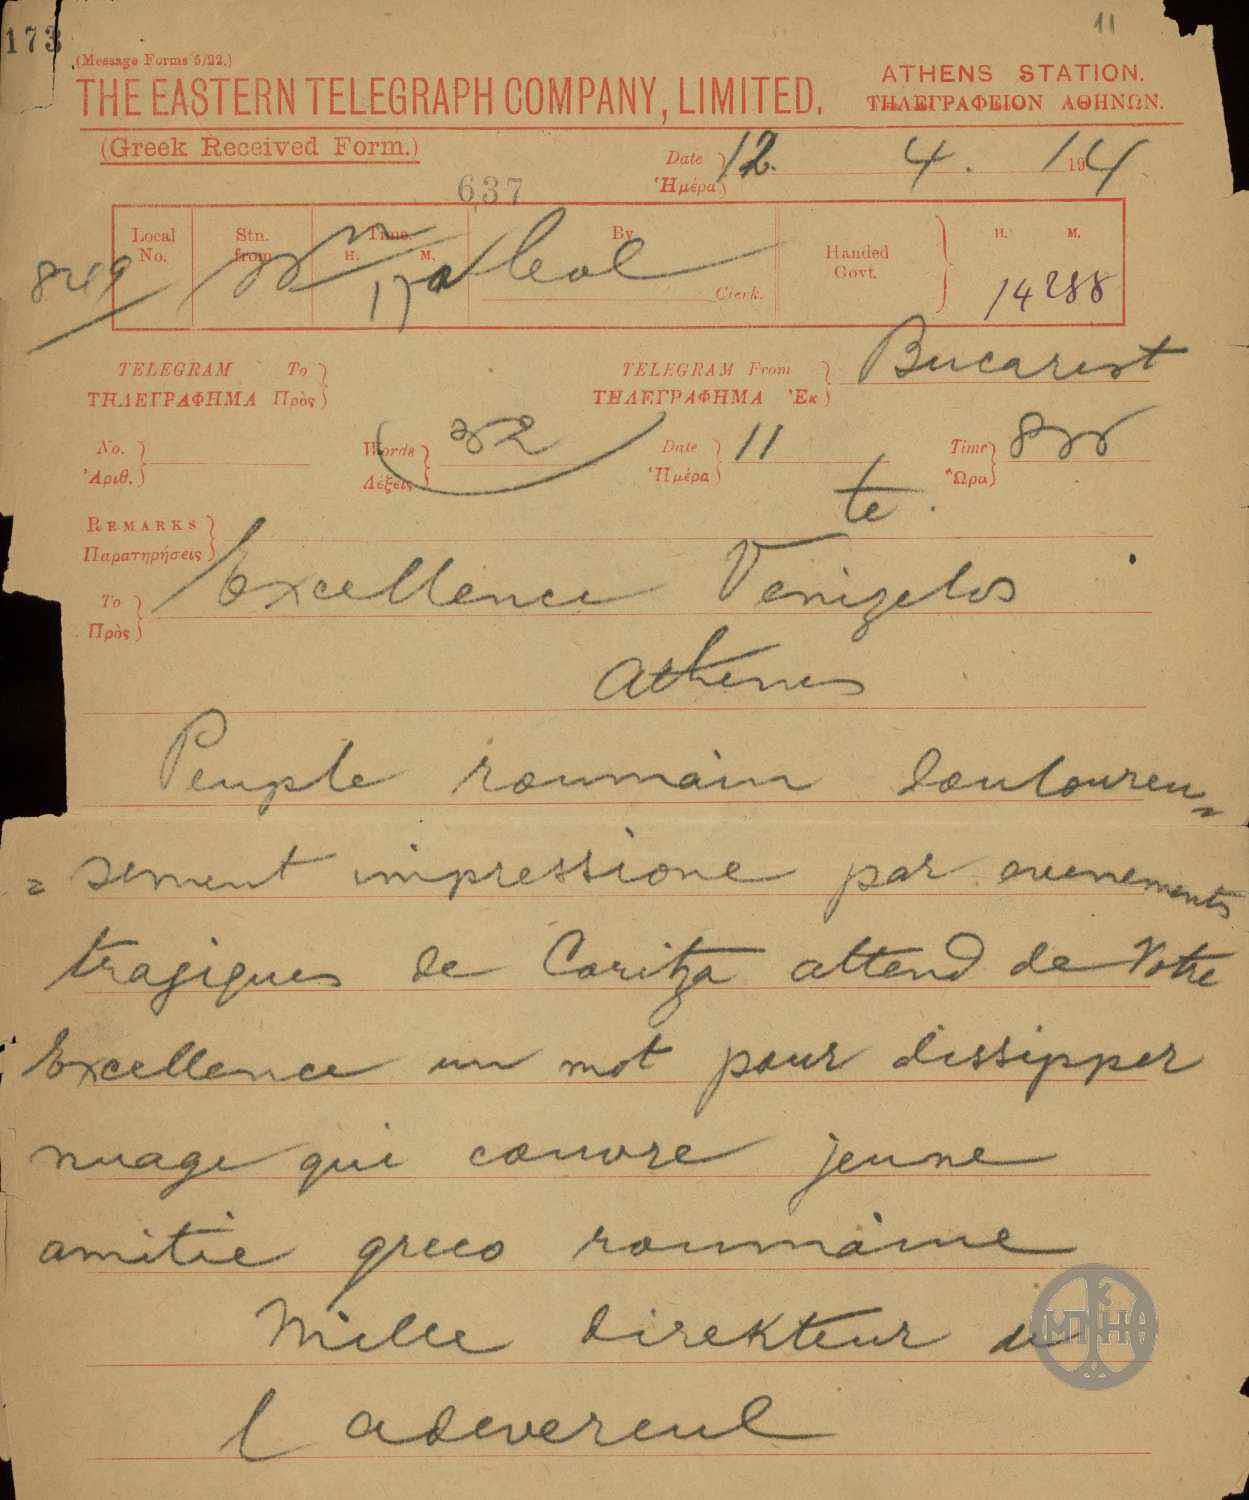 173
11
(Message Forms 5/22.)
THE EASTERN TELEGRAPH COMPANY, LIMITED.
ATHENS STATION.
ΤΗΛΕΓΡΑΦΕΙΟΝ ΑΘΗΝΩΝ.
(Greek Received Form.)
Date Ἡμέρα 12. 4. 1914
637
Local No. Stn. from Time. H. M. By Clerk. Handed Govt. H. M.
8249 14288
TELEGRAM To
ΤΗΛΕΓΡΑΦΗΜΑ Πρὸς
TELEGRAM From
ΤΗΛΕΓΡΑΦΗΜΑ Ἐκ
Bucarest
No. Ἀριθ. Words Λέξεις 32 Date Ἡμέρα 11 Time Ὥρα
te.
REMARKS
Παρατηρήσεις
To
Πρὸς
Excellence Venizelos
Athenes
Peuple roumain douloureu=
=sement impressione par evenements
tragiques de Coritza attend de Votre
Excellence un mot pour dissipper
nuage qui couvre jeune
amitie greco roumaine
Mille direkteur de
l adevereul